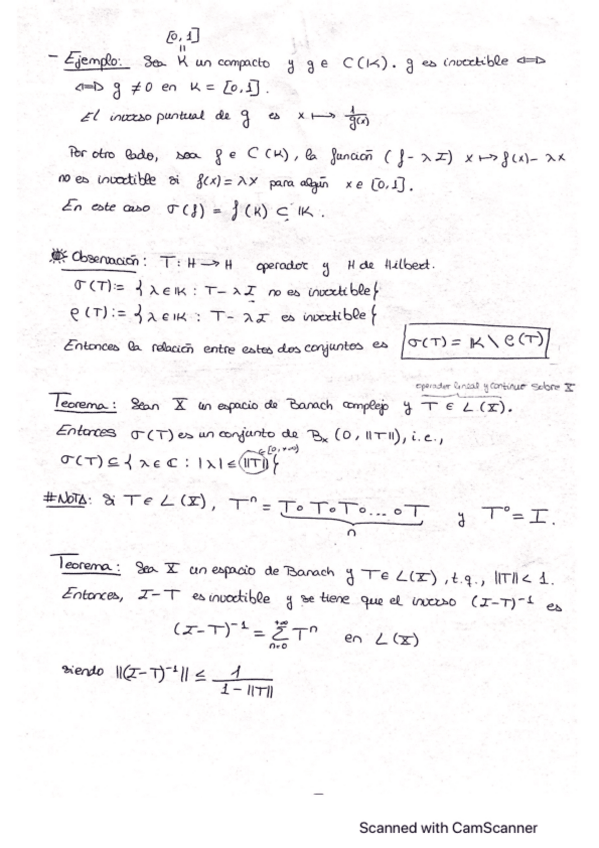 [0,1]
=
- Ejemplo: Sea K un compacto y g ∈ C(K). g es invertible ⟺
⟺ g ≠ 0 en K = [0,1].
El inverso puntual de g es x ↦ 1/g(x)
Por otro lado, sea f ∈ C(K), la función (f - λI) x ↦ f(x) - λx
no es invertible si f(x) = λx para algún x ∈ [0,1].
En este caso σ(f) = f(K) ⊆ IK.
Observación: T: H → H operador y H de Hilbert.
σ(T) := { λ ∈ IK : T - λI no es invertible }
ρ(T) := { λ ∈ IK : T - λI es invertible }
Entonces la relación entre estos dos conjuntos es σ(T) = IK \ ρ(T)
operador lineal y continuo sobre X
Teorema: Sean X un espacio de Banach complejo y T ∈ L(X).
Entonces σ(T) es un conjunto de Bx(0, ||T||), i.e.,
∈[0,+∞)
σ(T) ⊆ { λ ∈ ℂ : |λ| ≤ ||T|| }
# NOTA: Si T ∈ L(X), Tⁿ = T∘T∘T∘...∘T y T⁰ = I.
n
Teorema: Sea X un espacio de Banach y T ∈ L(X), t.q., ||T|| < 1.
Entonces, I - T es invertible y se tiene que el inverso (I-T)⁻¹ es
(I-T)⁻¹ = Σ_{n=0}^{+∞} Tⁿ en L(X)
siendo ||(I-T)⁻¹|| ≤ 1/(1 - ||T||)
Scanned with CamScanner